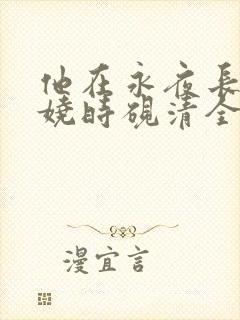 他在永夜長
嬈時硯清全
漫宜言